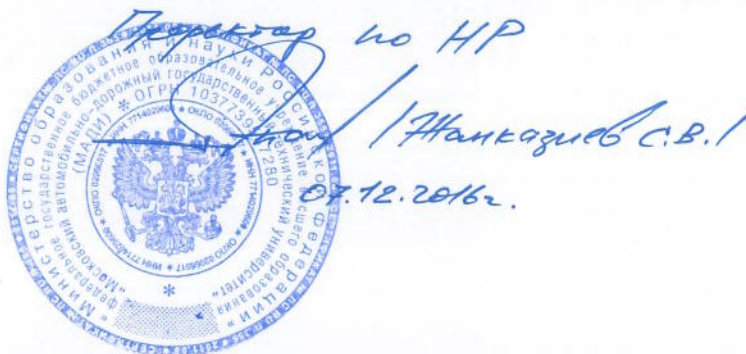 Проректор по НР
/Жанказиев С.В./
07.12.2016г.
Министерство образования и науки Российской Федерации
федеральное государственное бюджетное образовательное учреждение высшего образования
"Московский автомобильно-дорожный государственный технический университет"
(МАДИ) * ОГРН
* ИНН 7714029600 * ОКПО 02066517 * ИНН 7714029600 * ОКПО 02066517